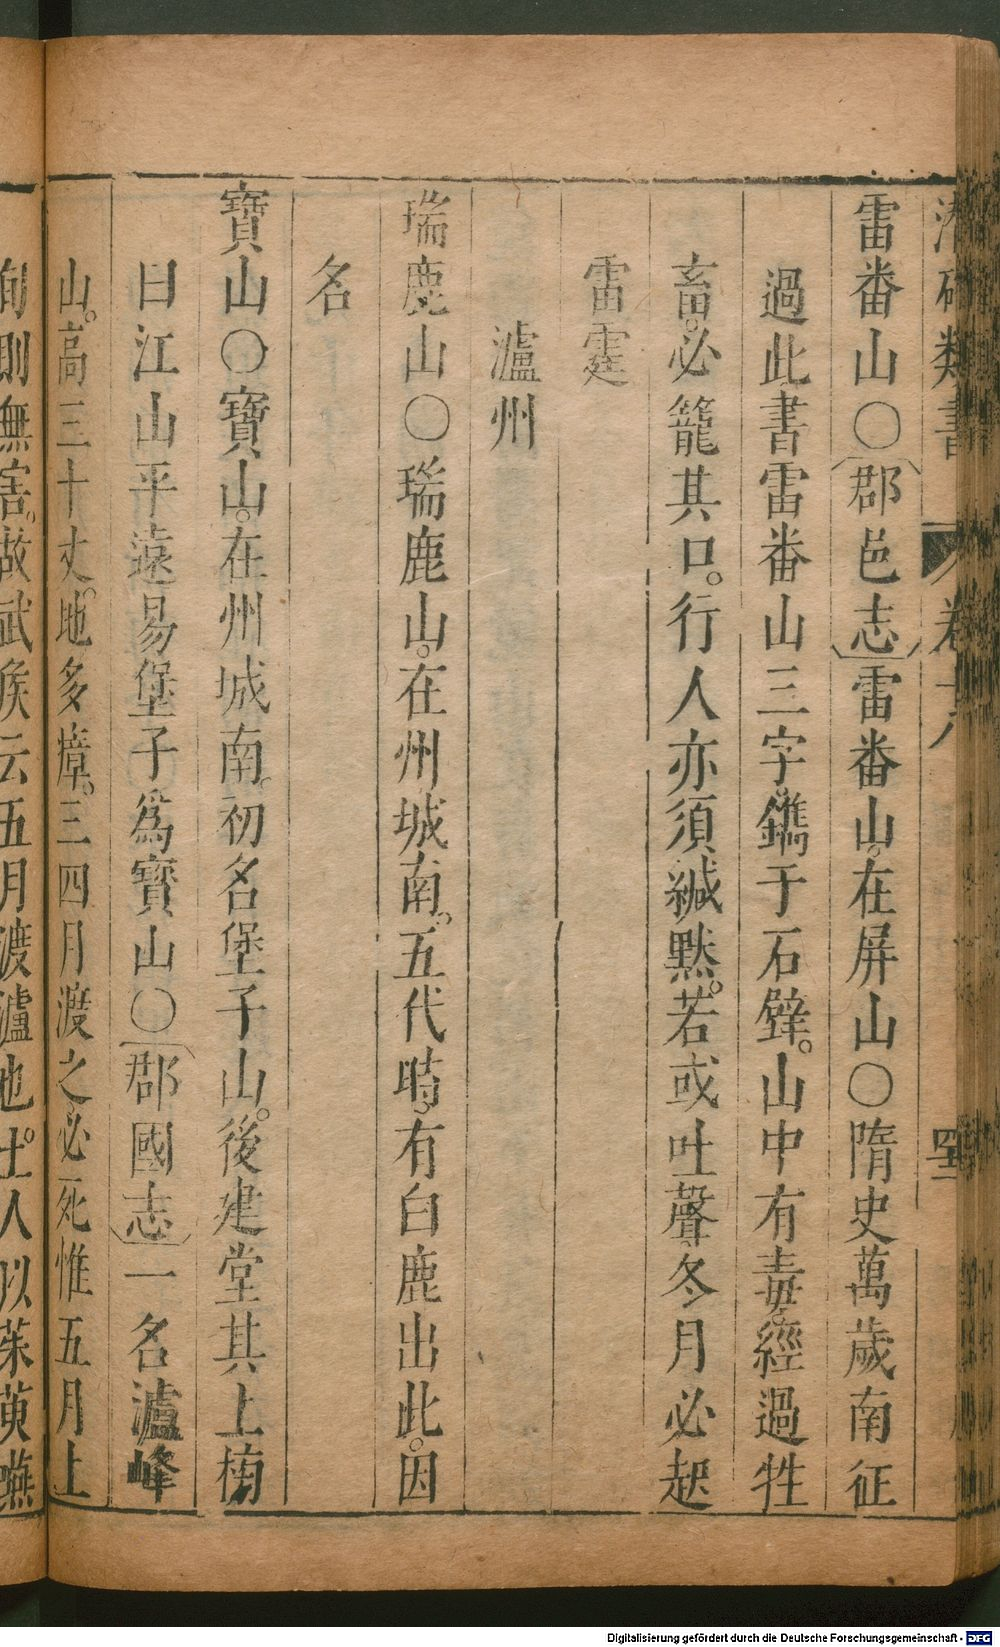 潛確類書 卷十八
雷番山〇〔郡邑志〕雷番山。在屏山〇隋史萬歲南征
過此書雷番山三字。鐫于石壁。山中有毒。經過牲
畜。必籠其口。行人亦須緘默。若或吐聲。冬月必起
雷霆
瀘州
瑞鹿山〇瑞鹿山。在州城南。五代時。有白鹿出此。因
名
寶山〇寶山。在州城南。初名堡子山。後建堂其上榜
曰江山平遠易堡子為寶山〇〔郡國志〕一名瀘峰
山。高三十丈。地多瘴。三四月渡之。必死惟五月上
旬則無害。故武侯云五月渡瀘也。土人以茱萸嚥
Digitalisierung gefördert durch die Deutsche Forschungsgemeinschaft - DFG